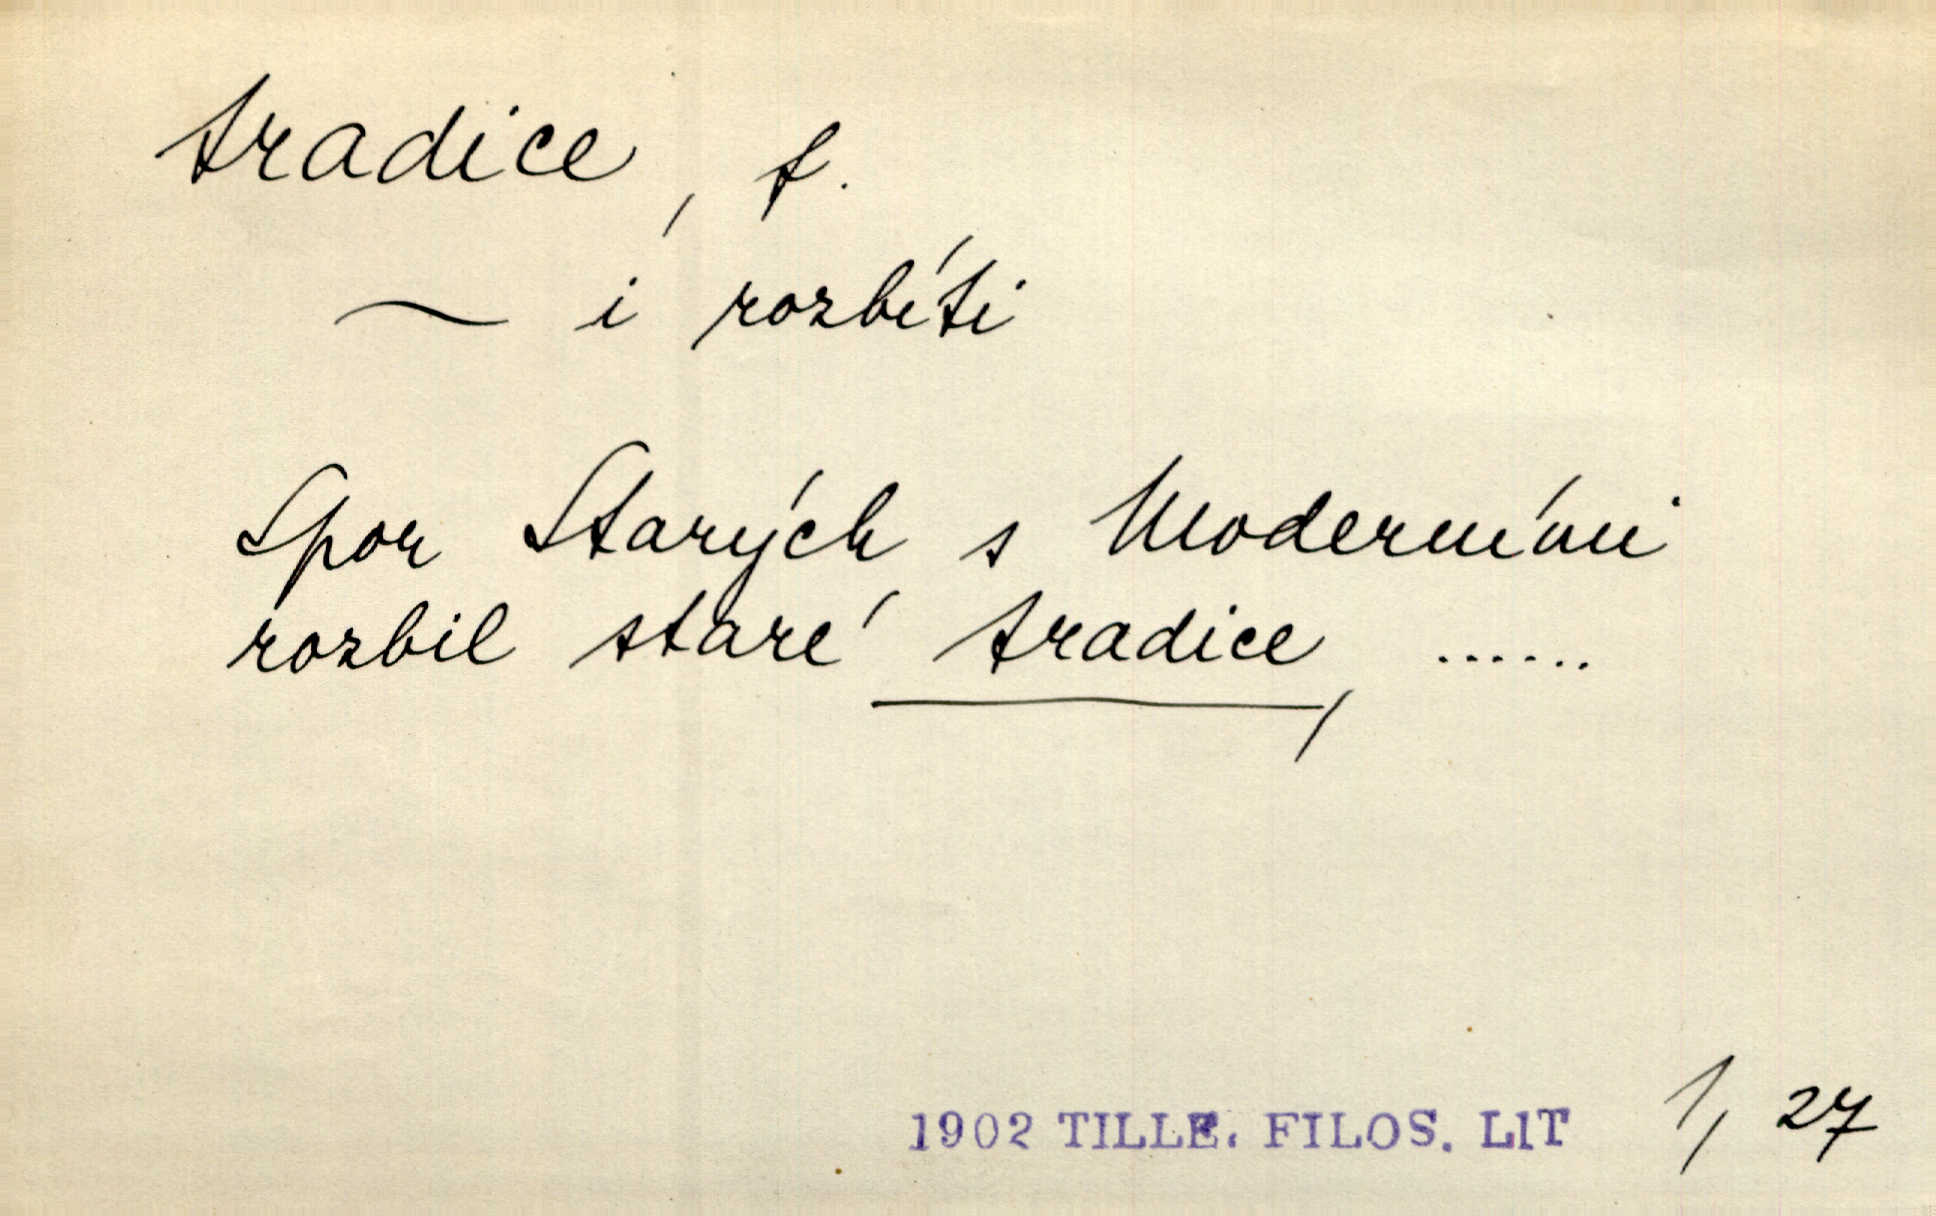 tradice, f.
~ i rozbíti
Spor Starých s Moderními
rozbil staré tradice, ......
1902 TILLE. FILOS. LIT 1, 27